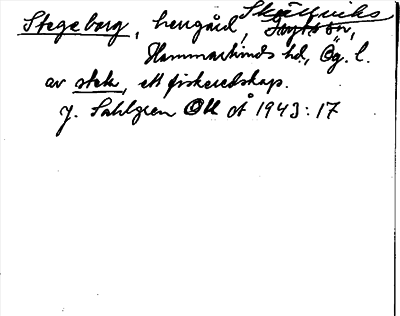 Stegeborg, herrgård, Skällviks
Hammarkinds hd, Ög. l.
av stek, ett fiskeredskap.
J. Sahlgren OUÅ 1943: 17